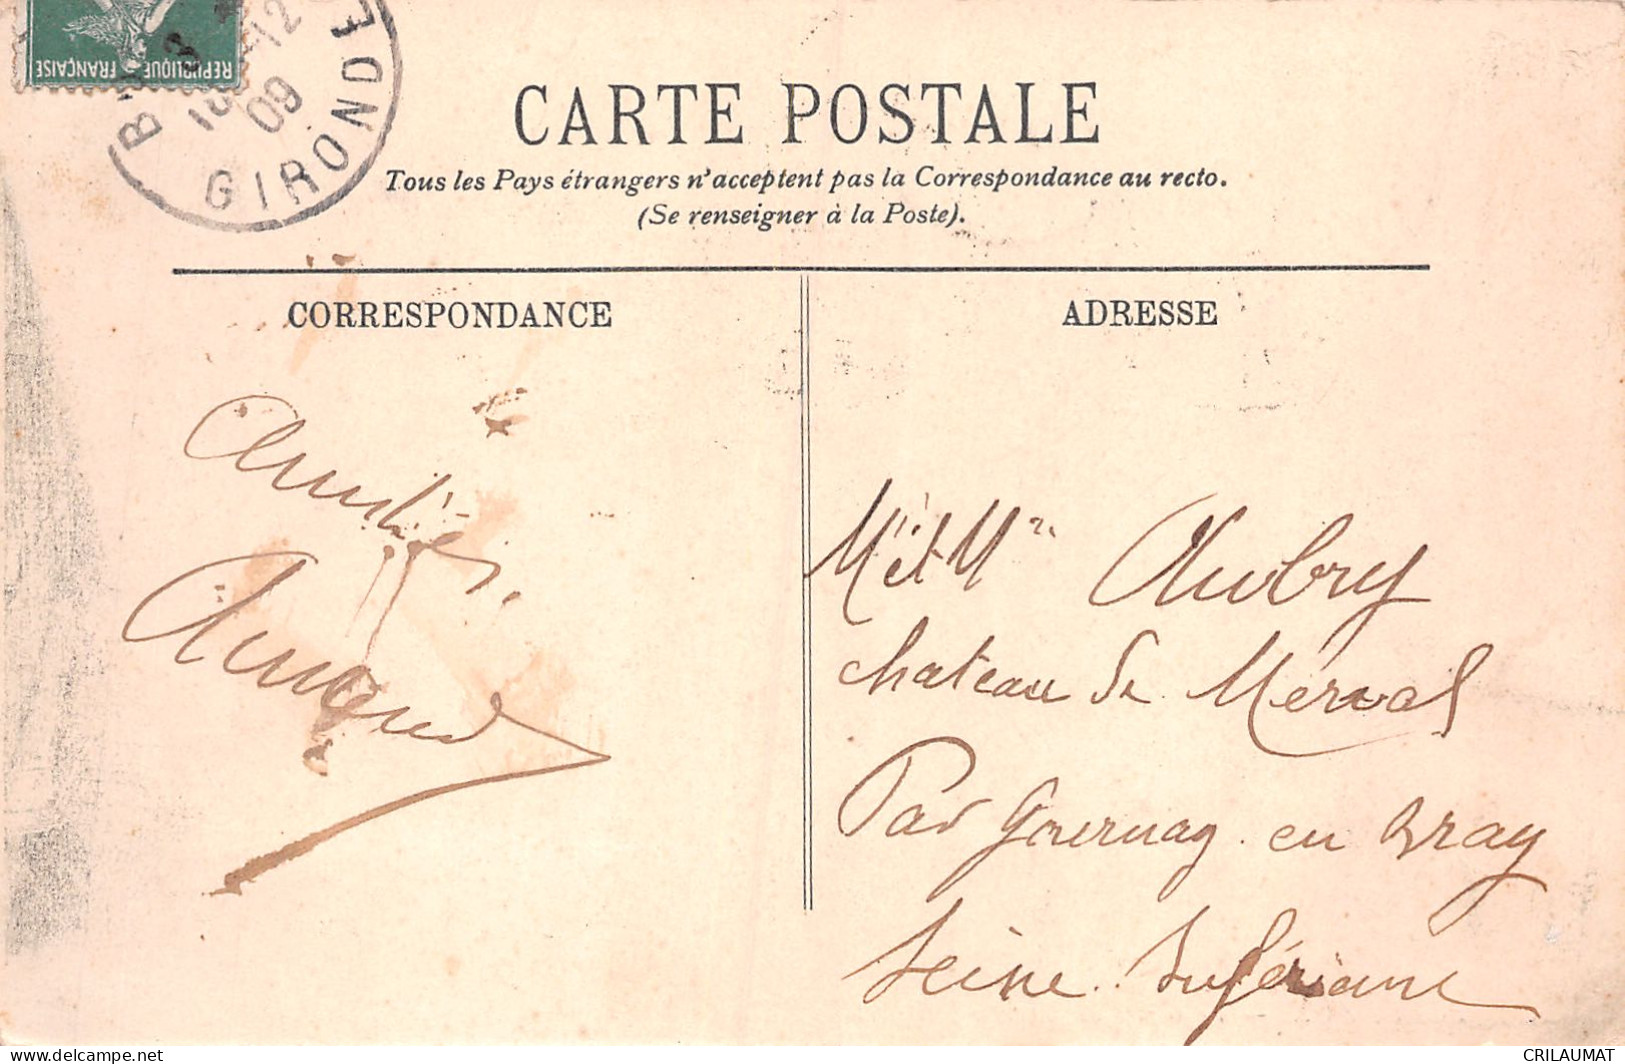 REPUBLIQUE FRANÇAISE
12
09
GIRONDE
CARTE POSTALE
Tous les Pays étrangers n'acceptent pas la Correspondance au recto.
(Se renseigner à la Poste).
CORRESPONDANCE
ADRESSE
Amitiés,
Armand
Mr et Mme Aubry
chateau de Merval
Par Gournay en Bray
Seine Inférieure
delcampe.net
CRILAUMAT